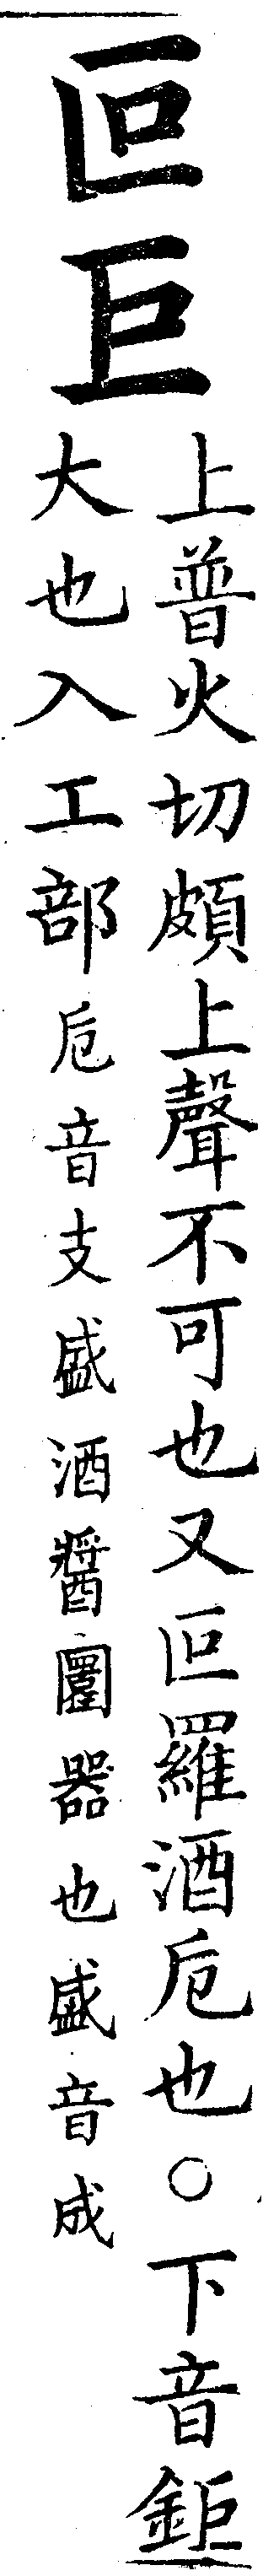 叵巨
上普火切頗上聲不可也又叵羅酒卮也○下音鉅
大也入工部卮音支盛酒醬圜器也盛音成